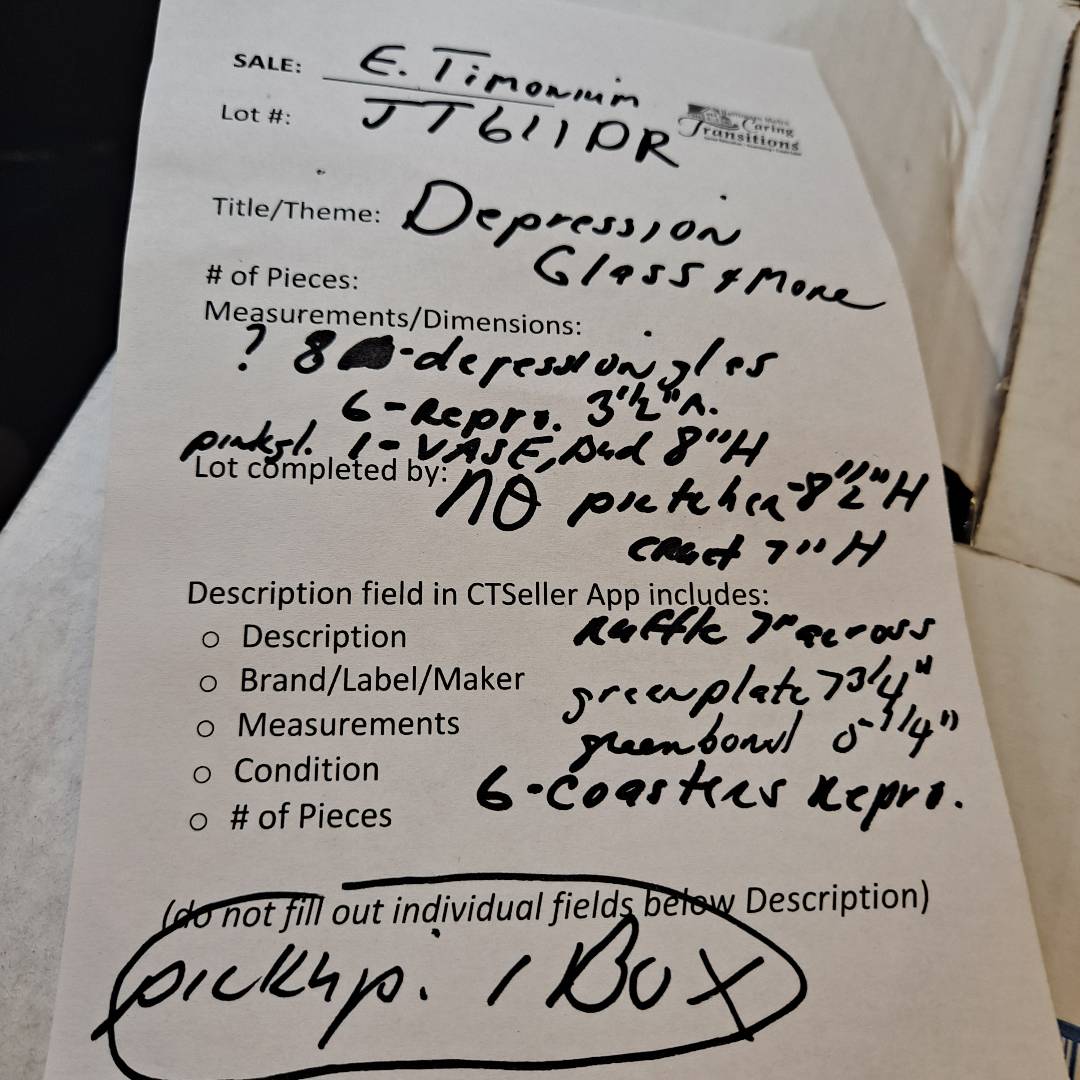 SALE: E. Timonium
Lot #: JT611DR
Caring
Transitions
Title/Theme: Depression
Glass & More
# of Pieces:
Measurements/Dimensions:
? 8 -depression gles
6-Repro. 3 1/2" h.
pink gl. 1-VASE, bud 8"H
Lot completed by: NO pictcher-8 1/2"H
cruet 7"H
Description field in CTSeller App includes:
○ Description ruffle 7" across
○ Brand/Label/Maker green plate 7 3/4"
○ Measurements green bowl 5-1/4"
○ Condition 6-Coasters Repro.
○ # of Pieces
(do not fill out individual fields below Description)
pickup. 1 Box